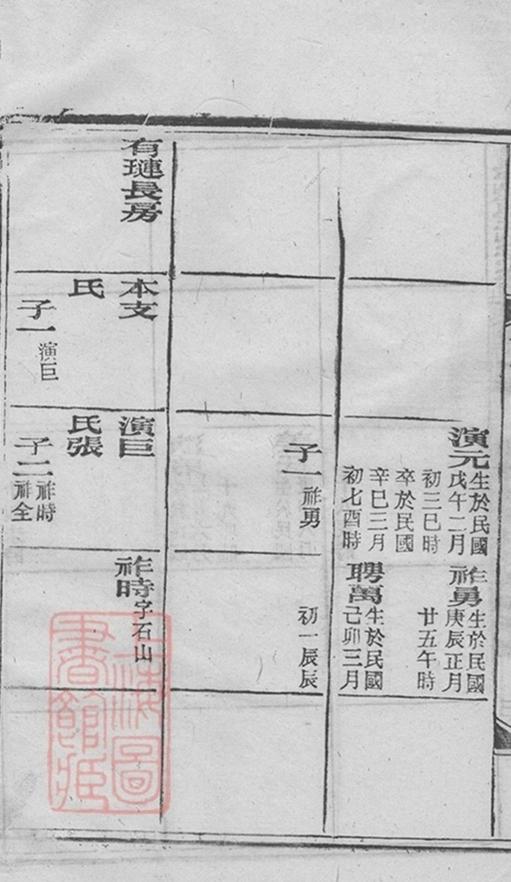 演元
生於民國
戊午二月
初三巳時
卒於民國
辛巳三月
初七酉時
子一
祚勇
祚勇
生於民國
庚辰正月
廿五午時
聘萬
生於民國
己卯三月
初一辰辰
有璉長房
本支
氏
子一
演巨
演巨
氏張
子二
祚時
祚全
祚時
字石山
上海圖
書館藏